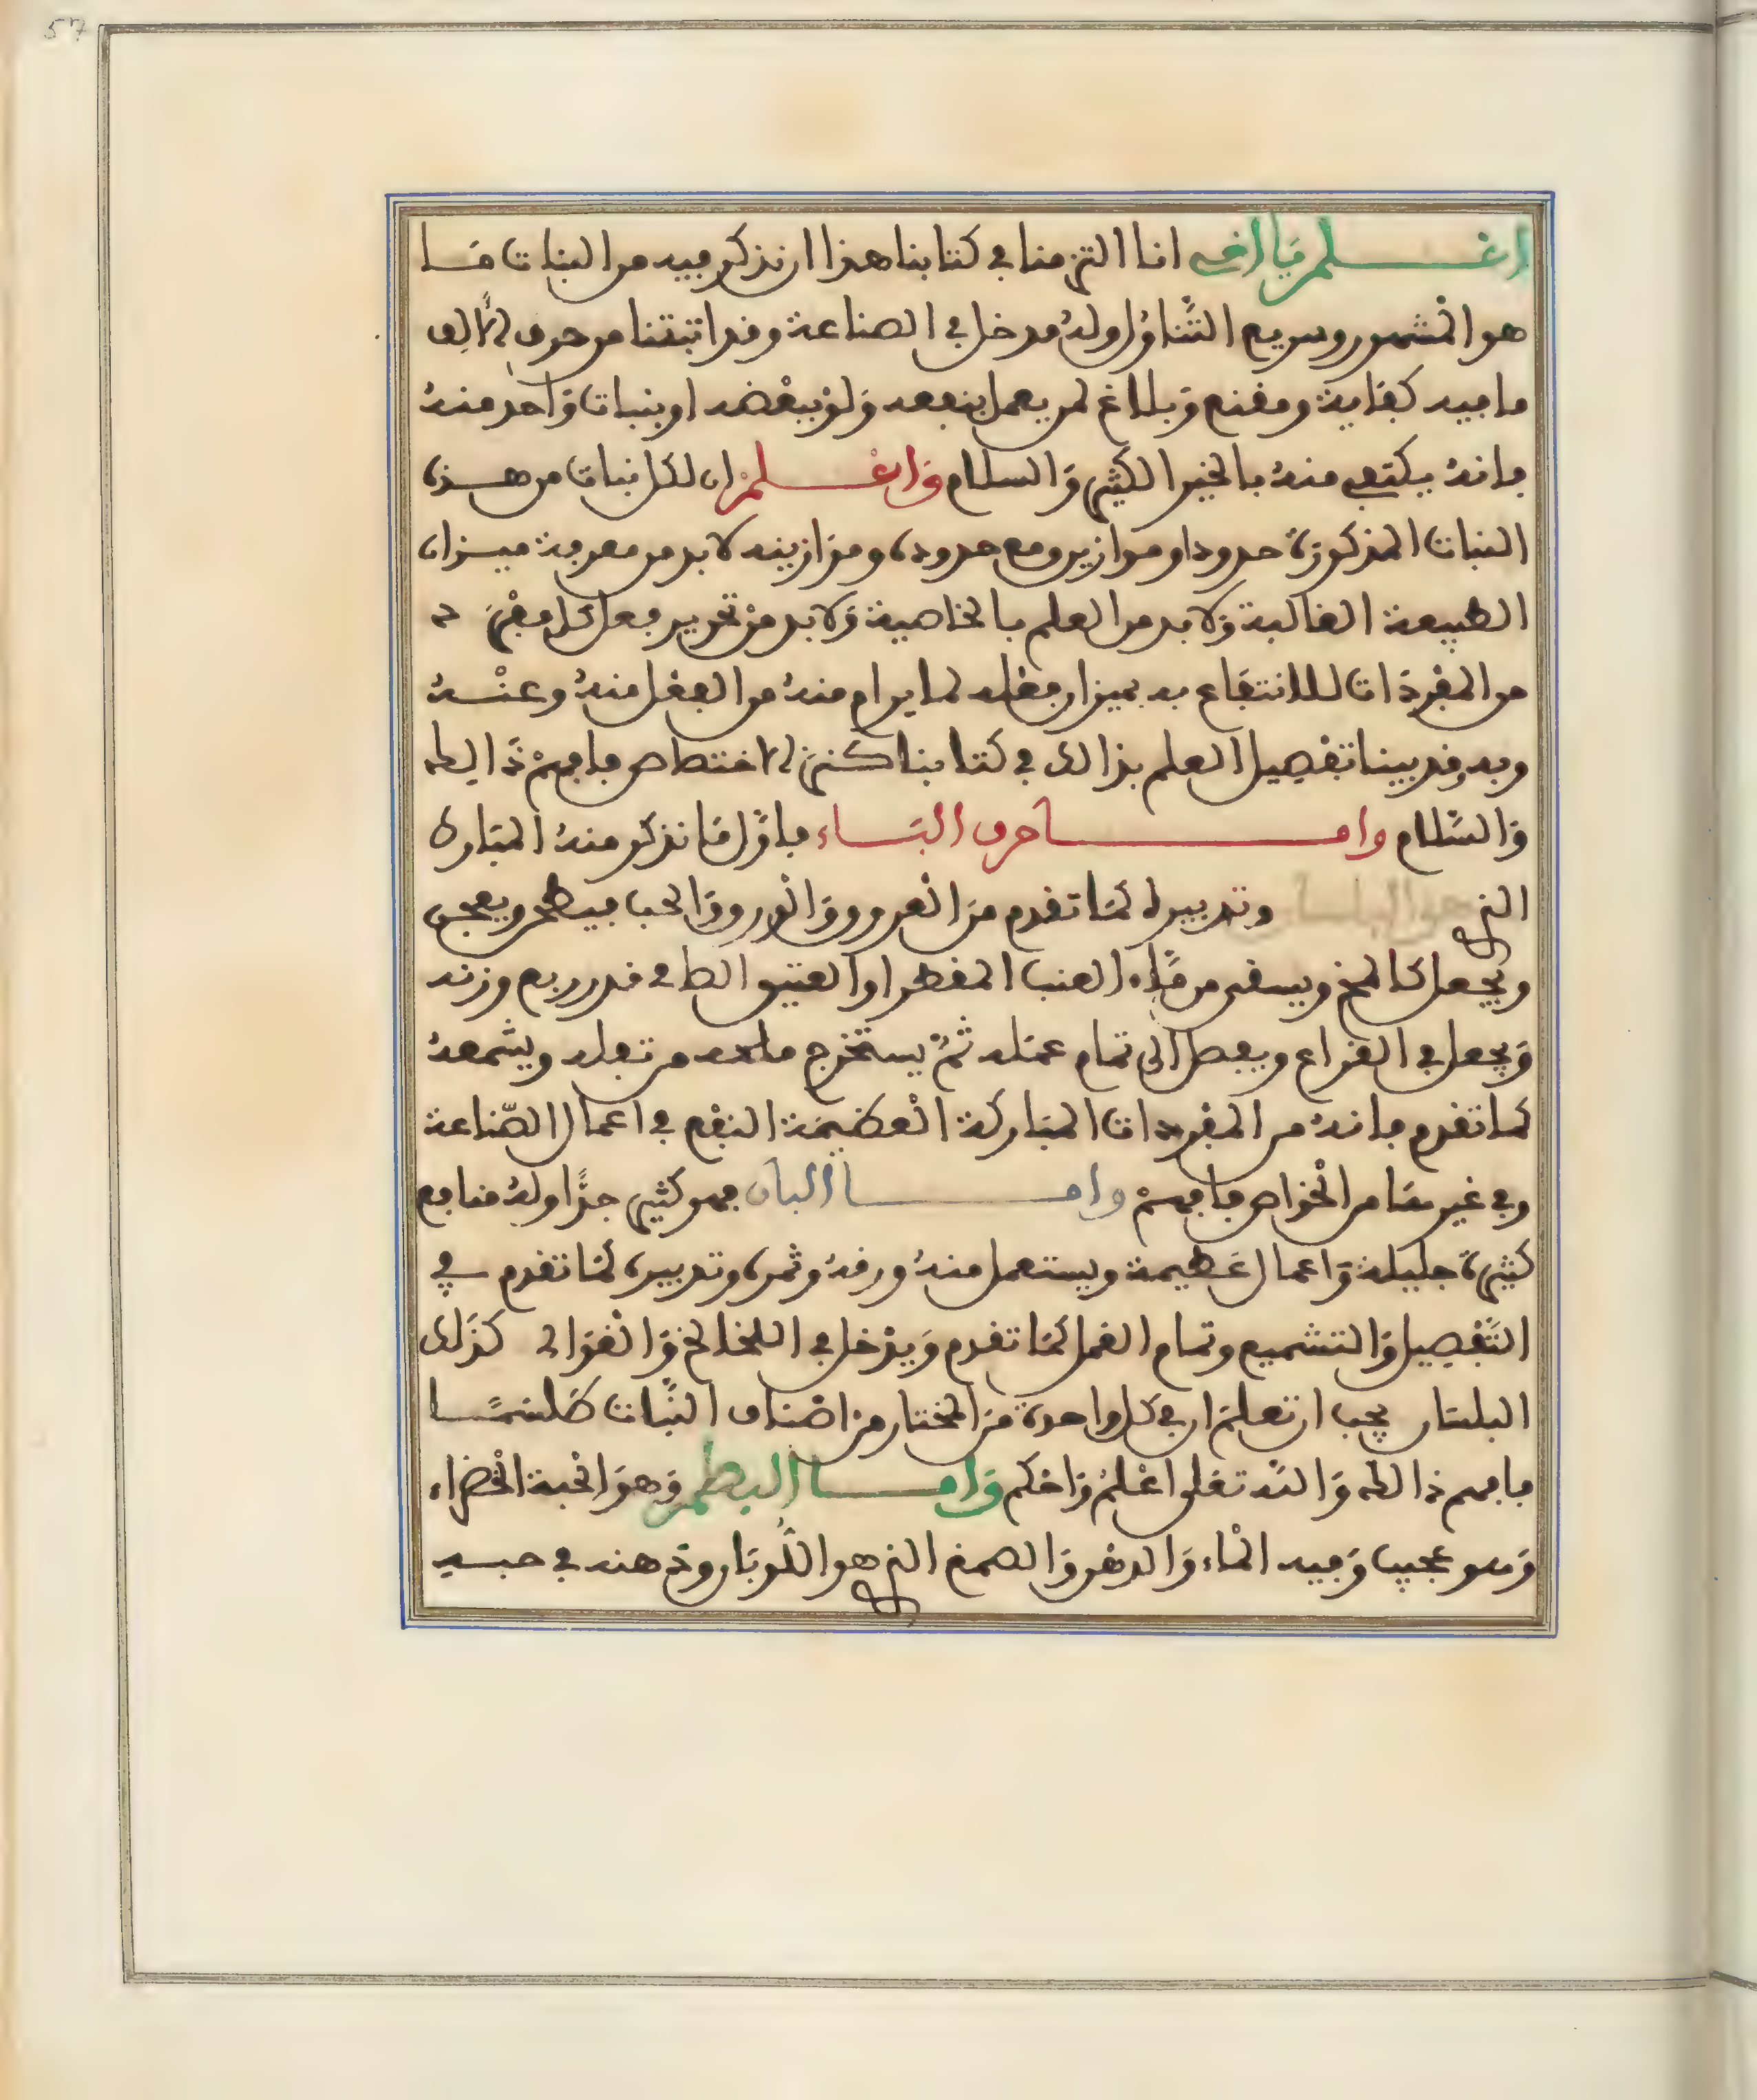 57
اعلم يا اخي انا التزمنا في كتابنا هذا ان نذكر فيه من النبات ما
هو المشهور وسريع التناول وله مدخل في الصناعة وقد اثبتنا من حرف الالف
ما فيه كفاية ومقنع وبلاغ لمن يعمل بنفعه ولو ببعضه او بنبات واحد منه
فانه يكتفي منه بالخير الكثير والسلام واعلم ان لكل نبات من هذه
النبات المذكورة حدودا وموازين ومع حدوده وموازينه لا بد من معرفة ميزان
الطبيعة الغالبة ولا بد من العلم بالخاصية ولا بد من تحرير فعل كل مفرد
من المفردات للانتفاع به بميزان فعله لما يرام منه من الفعل منه وعنه
وبه وقد بينا تفصيل العلم بذالك في كتابنا كنز الاختصاص فافهم ذالك
والسلام واما حرف الباء فاول ما نذكر منه المبارك
الذي هو البلسان وتدبيره كما تقدم من العروق والورق والحب فيطحن ويعجن
ويجعل كالمخ ويسقى من ماء العنب المقطر او العتيق الطافي قدر ربع وزنه
ويجعل في القراع ويفصل الى تمام عمله ثم يستخرج ملحه من تفله ويشمعه
كما تقدم فانه من المفردات المباركة العظيمة النفع في اعمال الصناعة
وفي غيرها من الخواص فافهم واما البان فهو كثير جدا وله منافع
كثيرة جليلة واعمال عظيمة ويستعمل منه ورقه وثمره وتدبيره كما تقدم في
التفصيل والتشميع وتمام العمل كما تقدم ويدخل في اللخالخ والغوالي كذلك
البلسان يجب ان تعلم ان في كل واحدة من المختار من اصناف النبات طلسما
فافهم ذالك والله تعلى اعلم واحكم واما البطم وهو الحبة الخضراء
وهو عجيب وفيه الماء والدهن والصمغ الذي هو اللوبان ودهنه في حبه